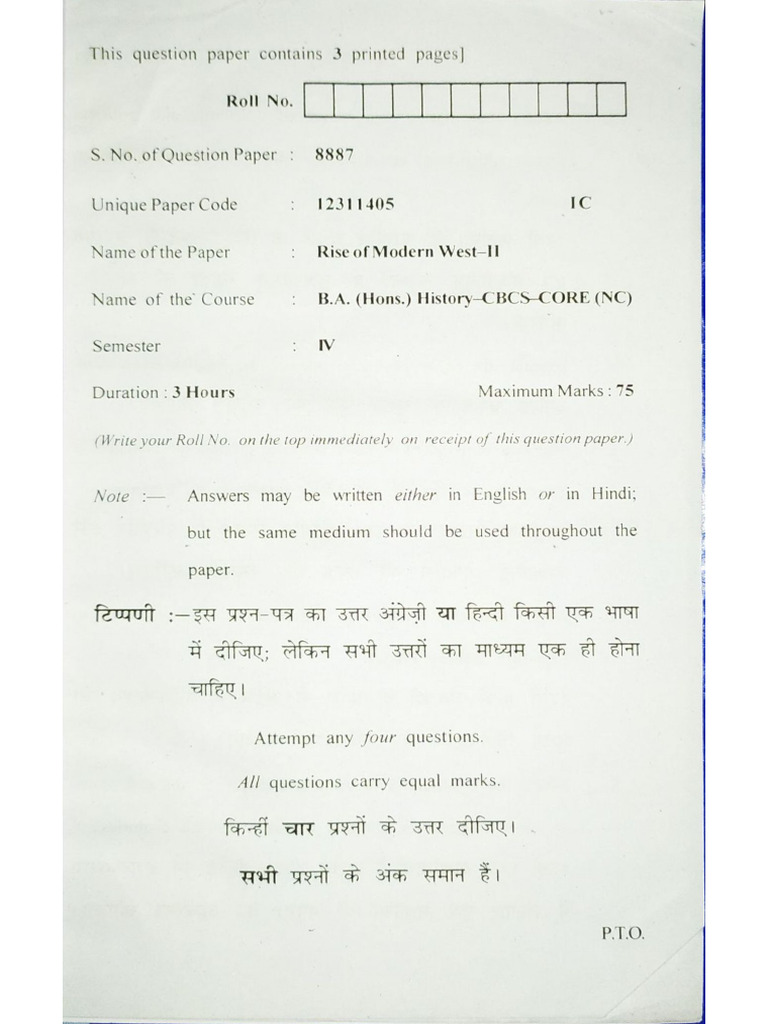 This question paper contains 3 printed pages]
Roll No.
S. No. of Question Paper : 8887
Unique Paper Code : 12311405 IC
Name of the Paper : Rise of Modern West–II
Name of the Course : B.A. (Hons.) History–CBCS–CORE (NC)
Semester : IV
Duration : 3 Hours Maximum Marks : 75
(Write your Roll No. on the top immediately on receipt of this question paper.)
Note :— Answers may be written either in English or in Hindi;
but the same medium should be used throughout the
paper.
टिप्पणी :—इस प्रश्न-पत्र का उत्तर अंग्रेज़ी या हिन्दी किसी एक भाषा
में दीजिए; लेकिन सभी उत्तरों का माध्यम एक ही होना
चाहिए।
Attempt any four questions.
All questions carry equal marks.
किन्हीं चार प्रश्नों के उत्तर दीजिए।
सभी प्रश्नों के अंक समान हैं।
P.T.O.